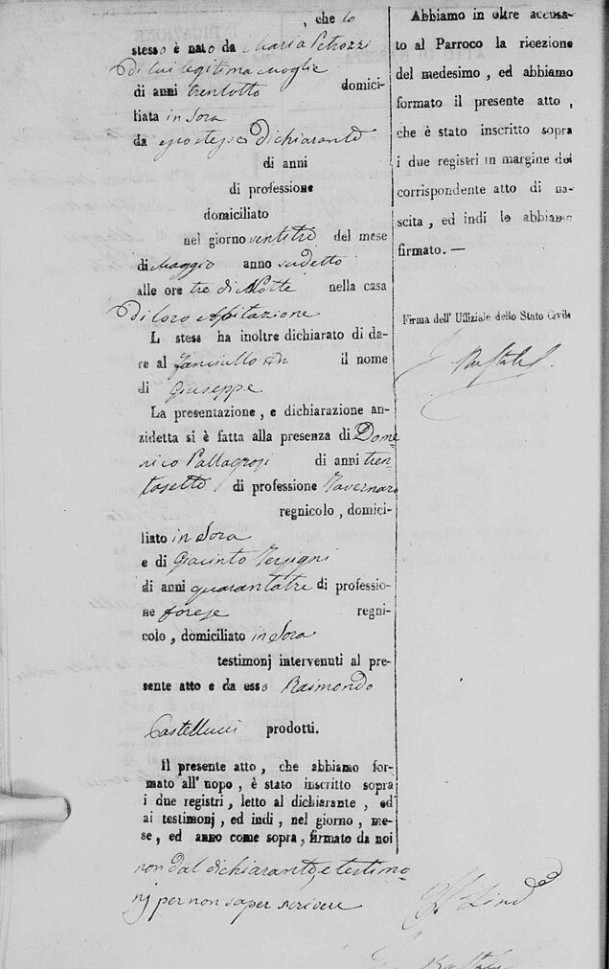 , che lo
stesso è nato da Maria Petrozzi
di lui legitima moglie
di anni trentotto domici-
liata in Sora
da esso stesso dichiarante
di anni
di professione
domiciliato
nel giorno ventitre del mese
di Maggio anno sudetto
alle ore tre di Notte nella casa
di loro abitazione
L stess ha inoltre dichiarato di da-
re al fanciullo il nome
di Giuseppe
La presentazione, e dichiarazione an-
zidetta si è fatta alla presenza di Dome
nico Pallagrosi di anni tren
tasette di professione Tavernaro
regnicolo, domici-
liato in Sora
e di Giacinto Tersigni
di anni quarantatre di professio-
ne forese regni-
colo, domiciliato in Sora
testimonj intervenuti al pre-
sente atto e da esso Raimondo
Castellucci prodotti.
Il presente atto, che abbiamo for-
mato all' uopo, è stato inscritto sopra
i due registri, letto al dichiarante, ed
ai testimonj, ed indi, nel giorno, me-
se, ed anno come sopra, firmato da noi
non dal dichiarante, e testimo
nj per non saper scrivere
Abbiamo in oltre accusa-
to al Parroco la ricezione
del medesimo, ed abbiamo
formato il presente atto,
che è stato inscritto sopra
i due registri in margine del
corrispondente atto di na-
scita, ed indi lo abbiamo
firmato. —
Firma dell' Uffiziale dello Stato Civile